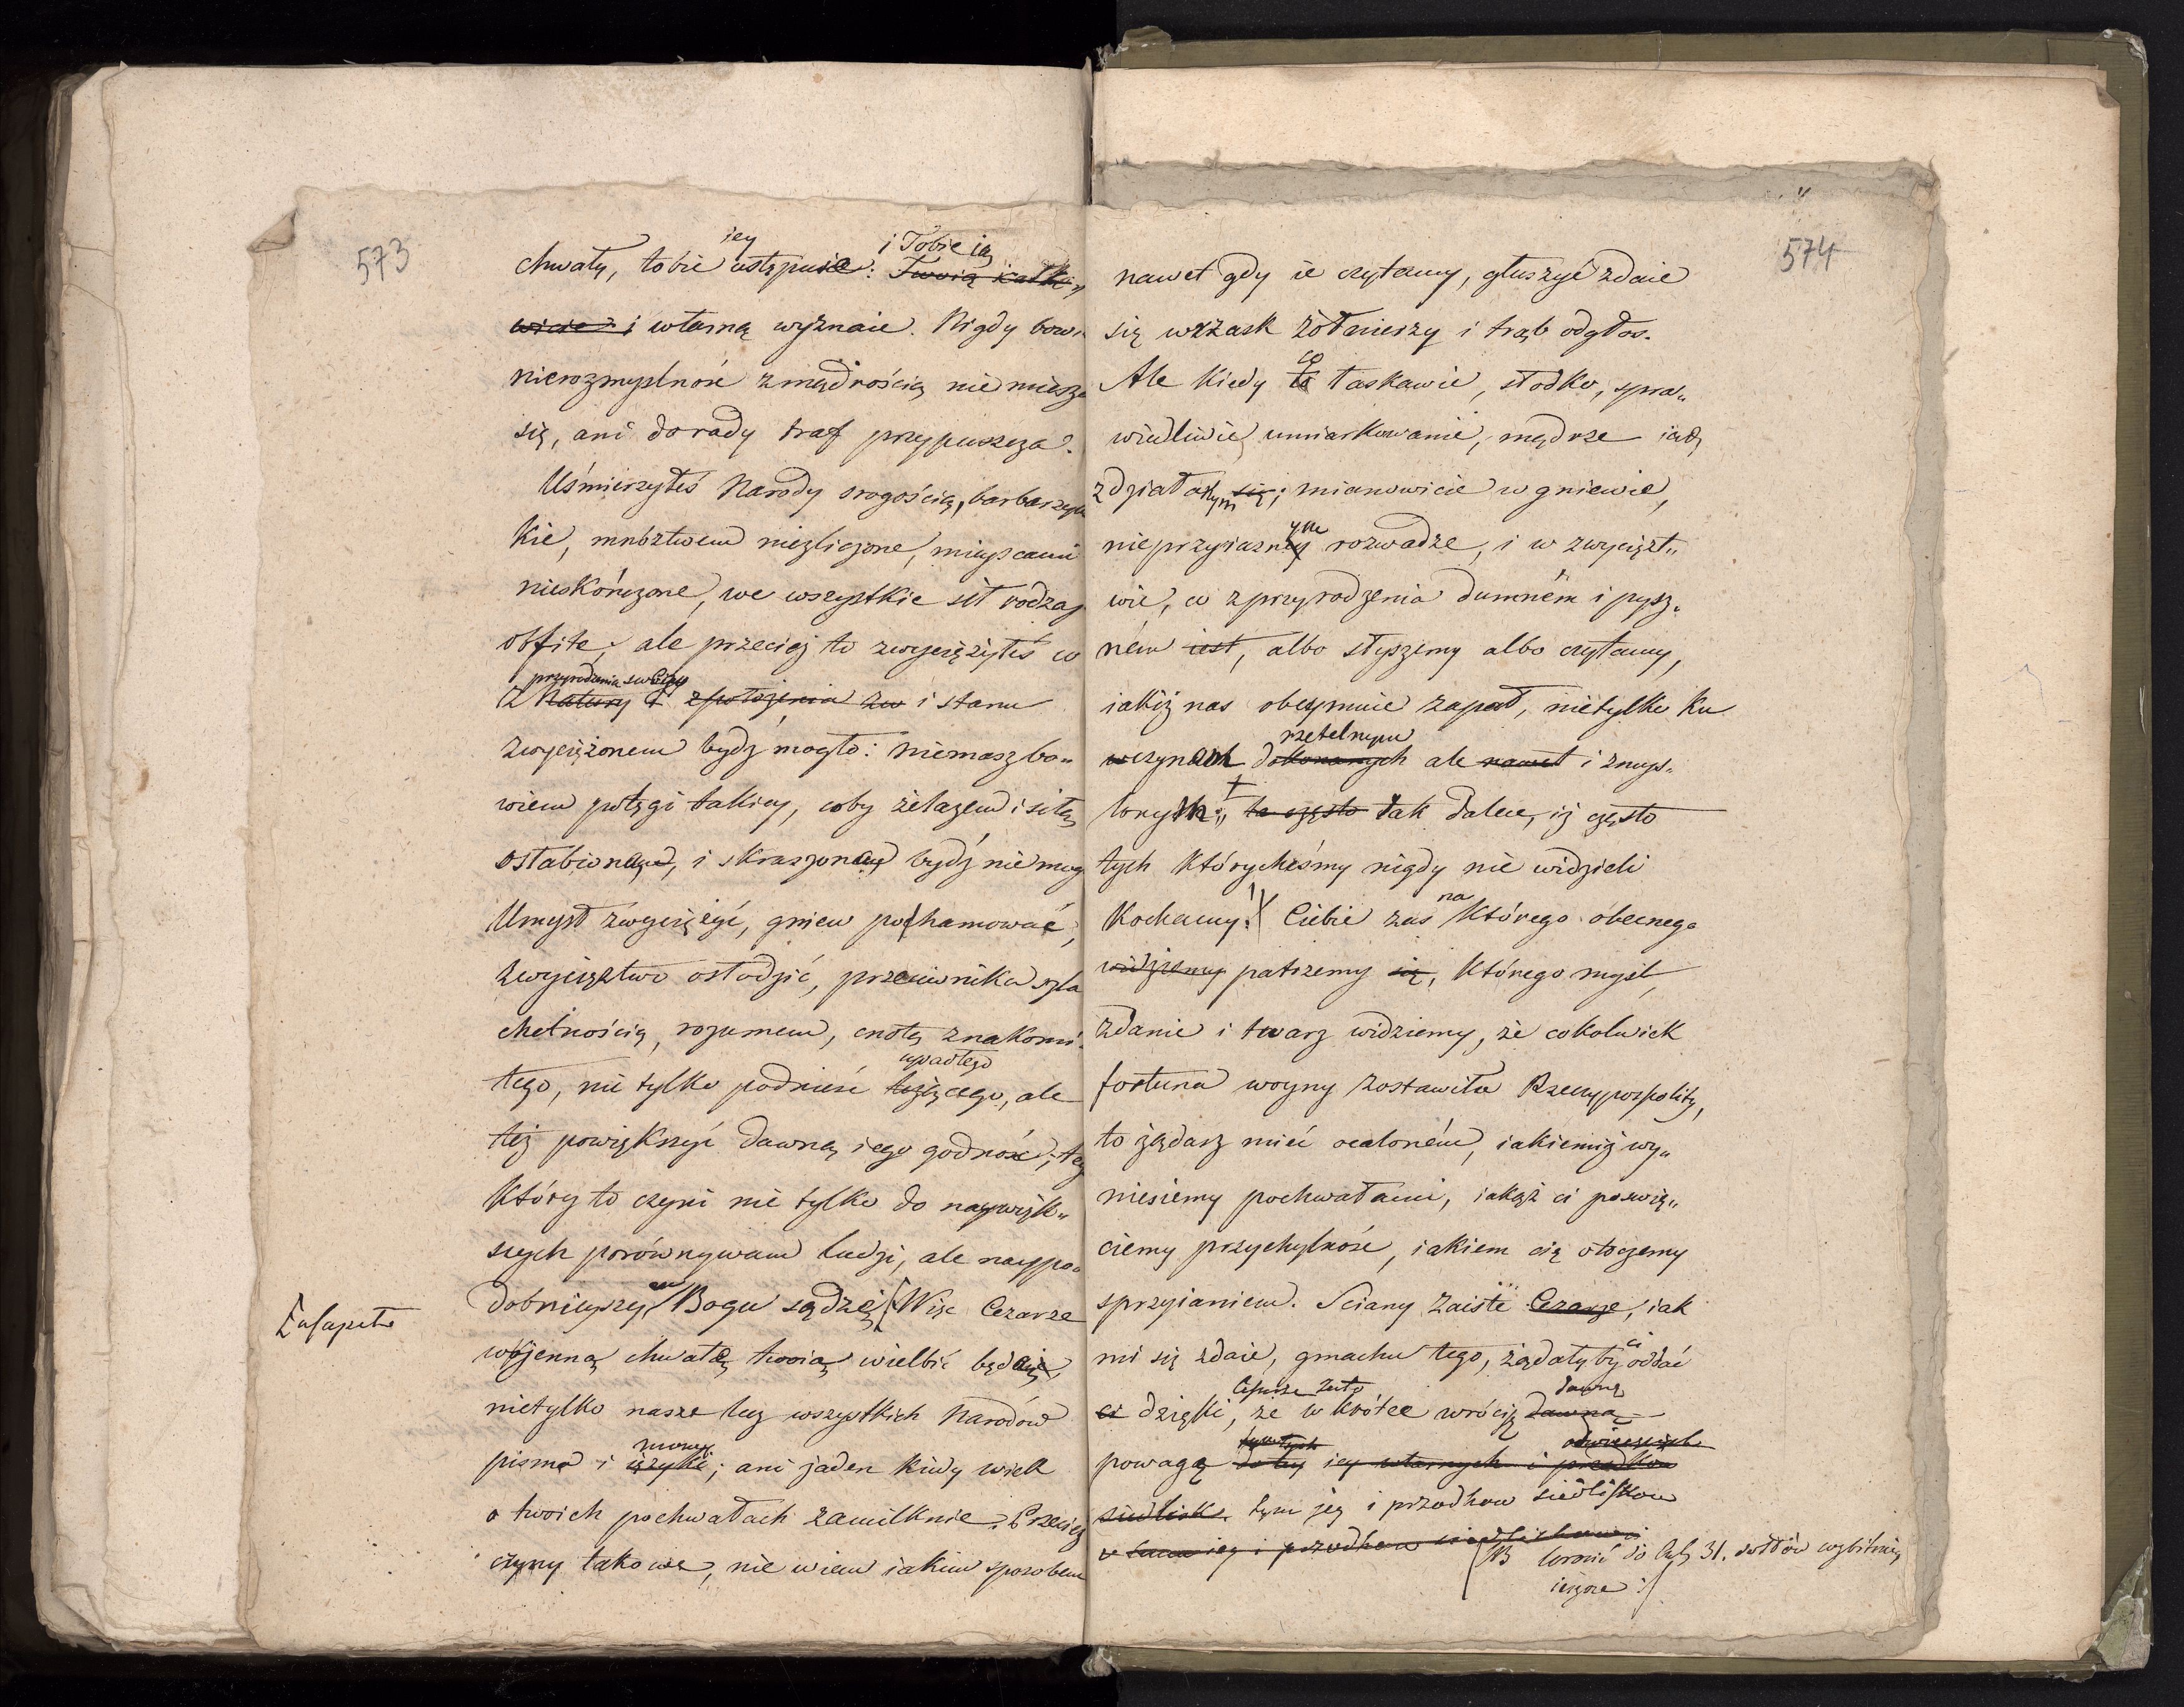 573
iey i Tobie ią
chwały, tobie ustępuie: Twoią całko„
wicie i własną wyznaie. Nigdy bow
nierozmyślność z mądrością nie miesza
się, ani do rady traf przypuszcza.
Uśmierzyłeś Narody srogością, barbarzyń
kie, mnóztwem niezliczone, mieyscami
nieskończone, we wszystkie sił rodzaj
obfite, ale przecież to zwyciężyłeś co
przyrodzenia swoiego
z Natury i z położenia zw i stanu
zwyciężonem bydź mogło: niemasz bo„
wiem potęgi takiey, coby żelazem i siłą
osłabioną, i skruszoną bydź nie mog
Umysł zwyciężyć, gniew pohamować,
zwycięztwo osłodzić, przeciwnika szla
chetnością, rozumem, cnotą znakomi
upadłego
tego, nie tylko podnieść leżącego, ale
też powiększyć dawną iego godność; teg
Który to czyni nie tylko do naywięk„
szych porównywam ludzi, ale naypo„
dobnieyszym Bogu sądzę [Więc Cezarze
wojenną chwałę twoią wielbić będą
nietylko nasze lecz wszystkich Narodów
mowy
pisma i ięzyki; ani jaden kiedy wiek
o twoich pochwałach zamilknie. Przecież
czyny takowe, nie wiem iakim sposobem
574
nawet gdy ie czytamy, głuszyć zdaie
się wrzask żołnierzy i trąb odgłos.
co
Ale kiedy to łaskawie, słodko, spra„
wiedliwie, umiarkowanie, mądrze iest
zdziałanym się; mianowicie w gniewie,
ym
nieprzyiazney rozwadze, i w zwycięzt„
wie, co z przyrodzenia dumném i pysz„
ném iest, albo słyszemy albo czytamy,
iakiż nas obeymuie zapał, nietylko ku
rzetelnym
wczynach dokonanych ale nawet i zmyś„
lonych; to często tak dalece, iż często
tych którycheśmy nigdy nie widzieli
na
Kochamy! Ciebie zaś którego obecnego
widziemy patrzemy się, którego myśl,
zdanie i twarz widziemy, że cokolwiek
fortuna woyny zostawiła Rzeczypospolity,
to żądasz mieć ocaloném, iakiemiż wy„
niesiemy pochwałami, iakąż ci poswię„
ciemy przychylność, iakiem cię otoczemy
sprzyianiem. Sciany zaiste Cezarze, iak
ci
mi się zdaie, gmachu tego, żądałyby oddać
dawną
ci dzięki, że wkrótce wrócisz dawną
powagę do tey iey własnych i przodków
siedlisk. tym jey i przodkow siedliskow
v tema iey i przodkow siedliskow
NB wrocić do 31.
ieszcze :/